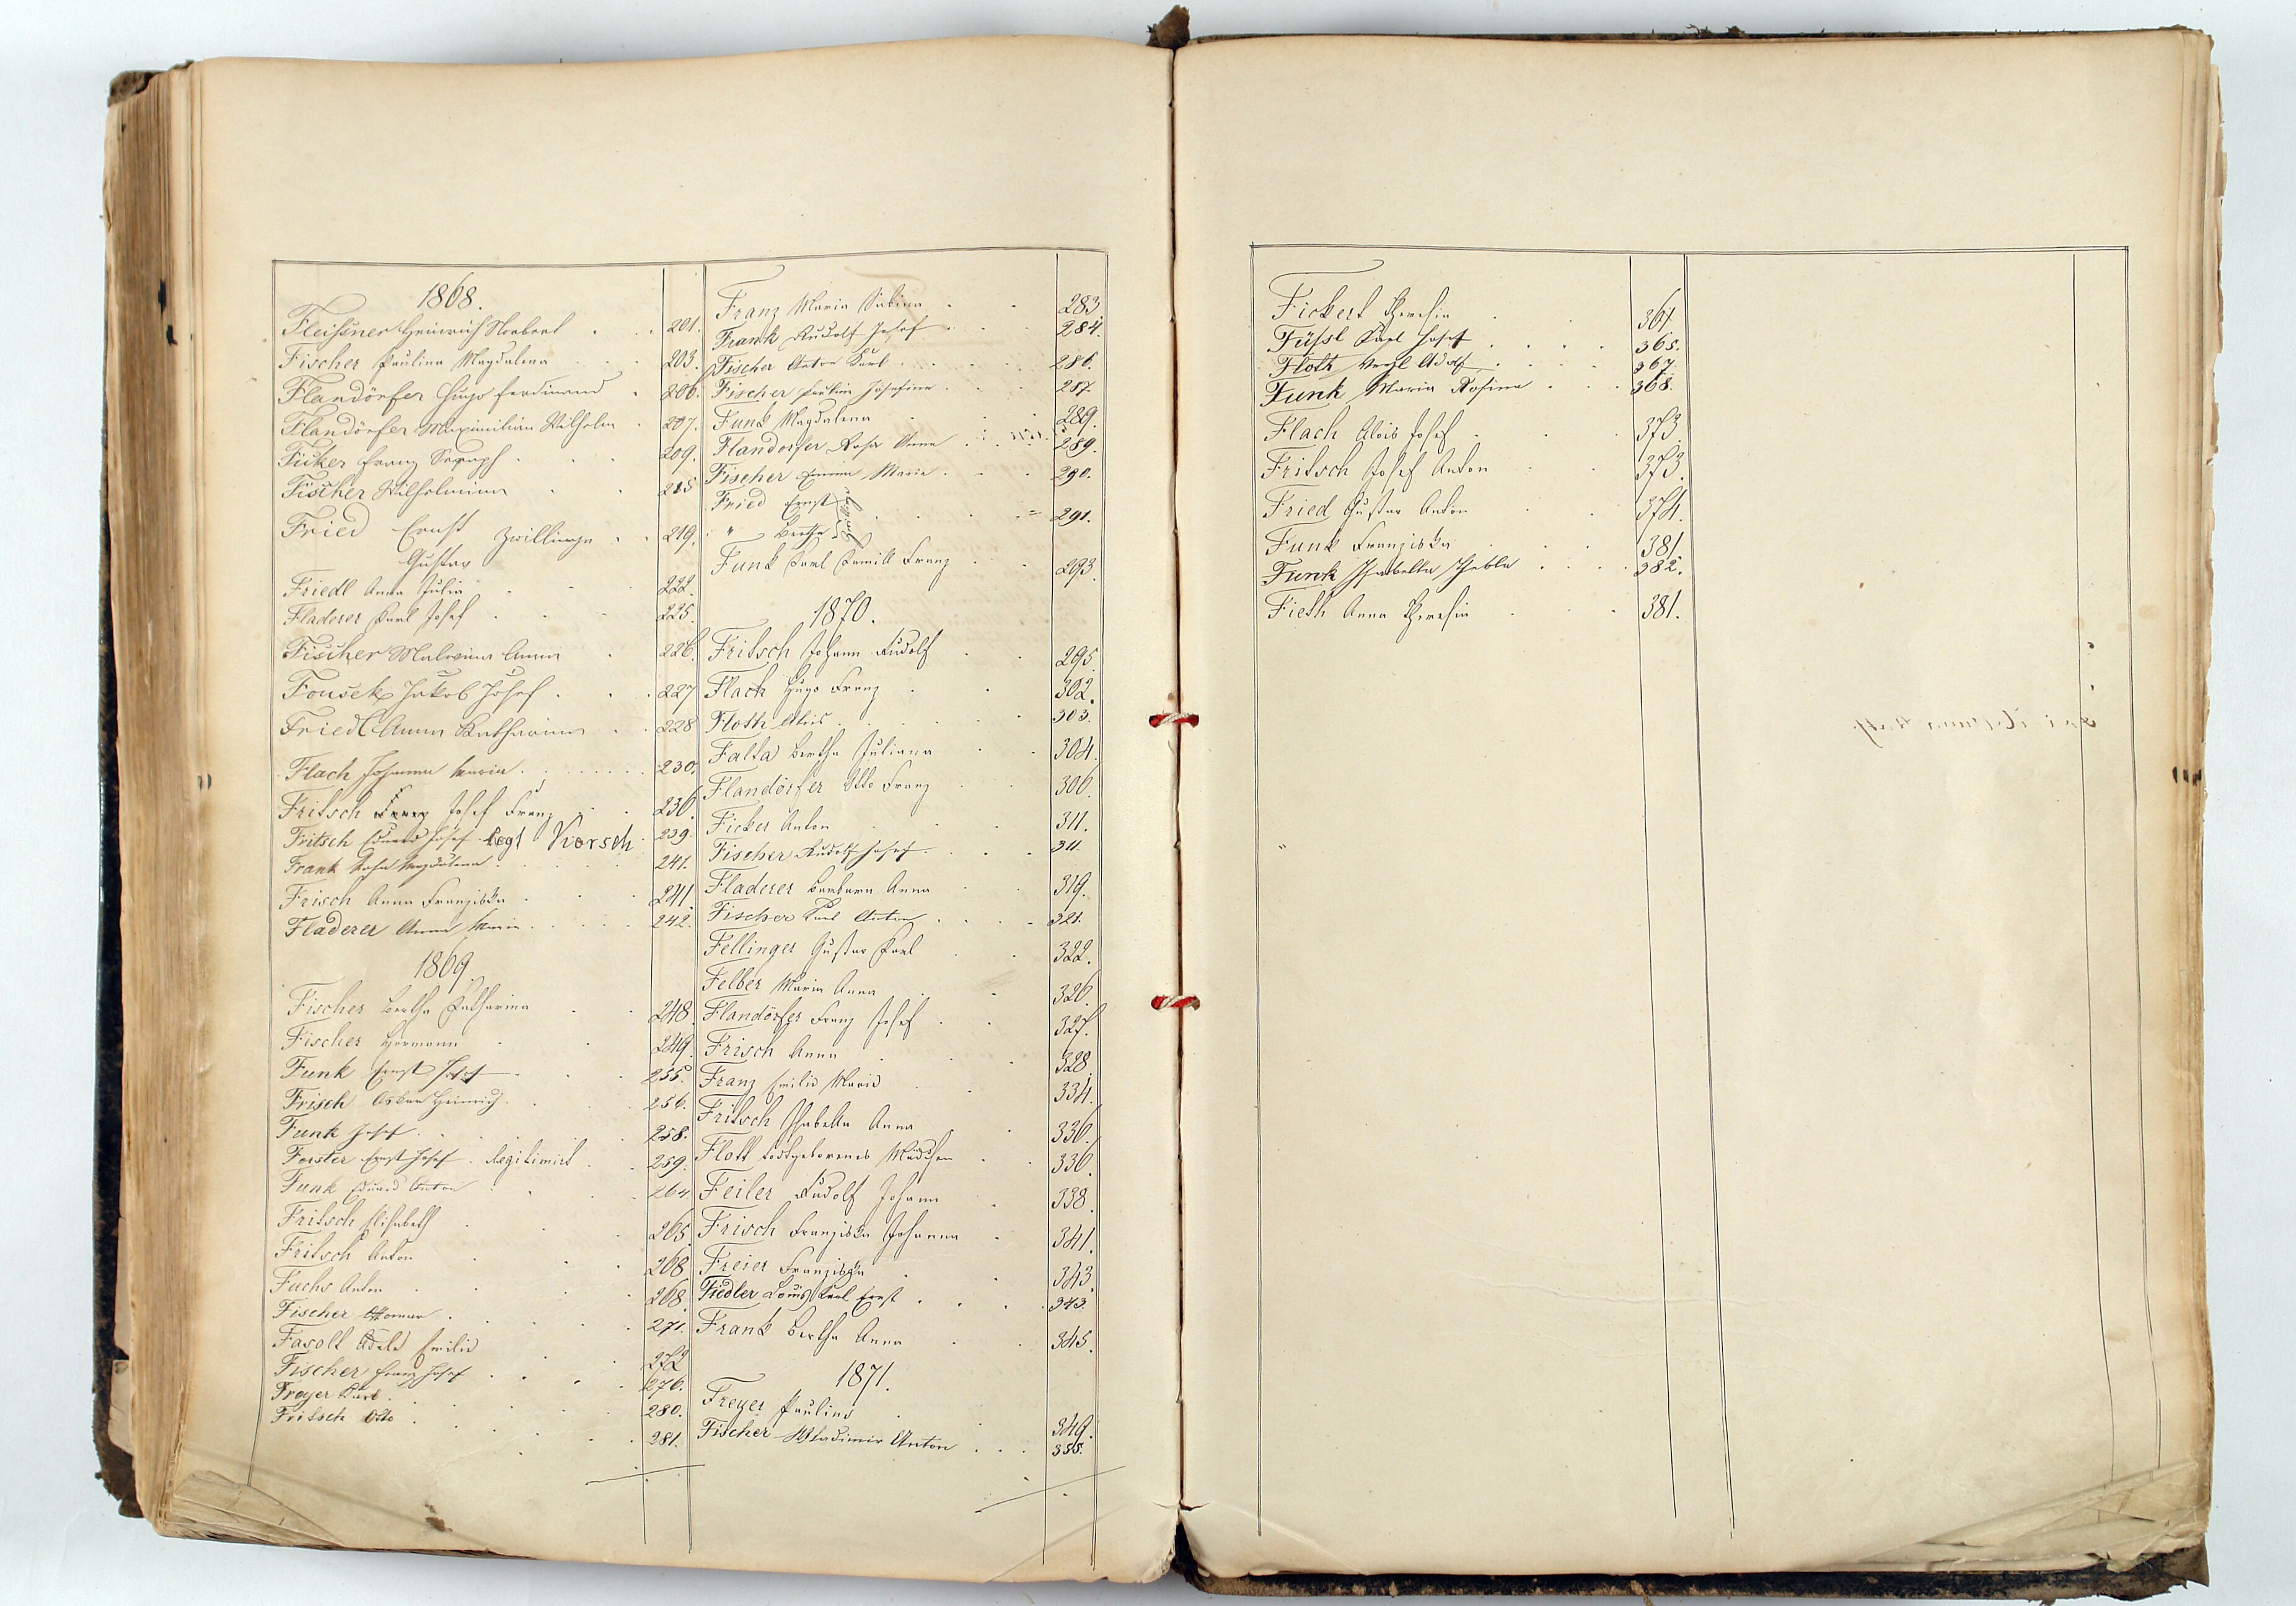 1868.
Fleißner Heinrich Norbert 201.
Fischer Paulina Magdalena 203.
Flandörfer Hugo Ferdinand 206.
Flandörfer Maximilian Wilhelm 207.
Ficker Franz Seraph 209.
Fischer Wilhelmine 215
Fried Ernst Zwillinge 219.
Gustav
Friedl Anna Julia 222.
Fladerer Karl Josef 225.
Fischer Malwina Anna 226.
Fousek Jakob Josef 227
Friedl Anna Katharina 228
Flach Johanna Maria 230.
Fritsch Franz Josef Franz 236.
Fritsch Eduard Josef legt Korsch 239.
Frank Rosa Magdalena 241.
Frisch Anna Franziska 241
Fladerer Anna Maria 242.
1869.
Fischer Bertha Katharina 248.
Fischer Hermann 249.
Funk Ernst Josef 255.
Frisch Oskar Heinrich 256.
Funk Josef 258.
Forster Ernst Josef Legitimirt 259.
Funk Eduard Anton 264.
Fritsch Elisabeth 265.
Fritsch Anton 268.
Fuchs Anton 268.
Fischer Ottomar 271.
Fasolt Adele Emilie 272
Fischer Franz Josef 276.
Freyer Karl 280.
Fritsch Otto 281.
Franz Maria Sabina 283.
Frank Rudolf Josef 284.
Fischer Anton Karl 286.
Fischer Pauline Josefine 287.
Funk Magdalena 289.
Flandorfer Rosa Anna 289.
Fischer Emma Maria 290.
Fried Ernst Zwillinge
" Bertha 291.
Funk Karl Kamill Franz 293.
1870.
Fritsch Johann Rudolf 295.
Flach Hugo Franz 302.
Floth Alois 303.
Falta Bertha Juliana 304.
Flandörfer Otto Franz 306.
Ficker Anton 311.
Fischer Rudolf Josef 311.
Fladerer Barbara Anna 319.
Fischer Karl Anton 321.
Fellinger Gustav Karl 322.
Felber Maria Anna 326.
Flandörfer Franz Josef 327.
Frisch Anna 328.
Franz Emilie Marie 334.
Fritsch Isabella Anna 336.
Flott todtgeborenes Mädchen 336.
Feiler Rudolf Johann 338.
Frisch Franziska Johanna 341.
Freier Franziska 343.
Fiedler Louis Karl Ernst 343.
Frank Bertha Anna 345.
1871.
Freyer Pauline 349.
Fischer Wladimir Anton 355.
Fickert Theresia 361
Füßl Karl Josef 365.
Floth Adolf 367.
Funk Maria Rosina 368.
Flach Alois Josef 373.
Fritsch Josef Anton 373.
Fried Gustav Anton 374.
Funk Franziska 381.
Funk Isabella Thekla 382.
Fieth Anna Theresia 381.